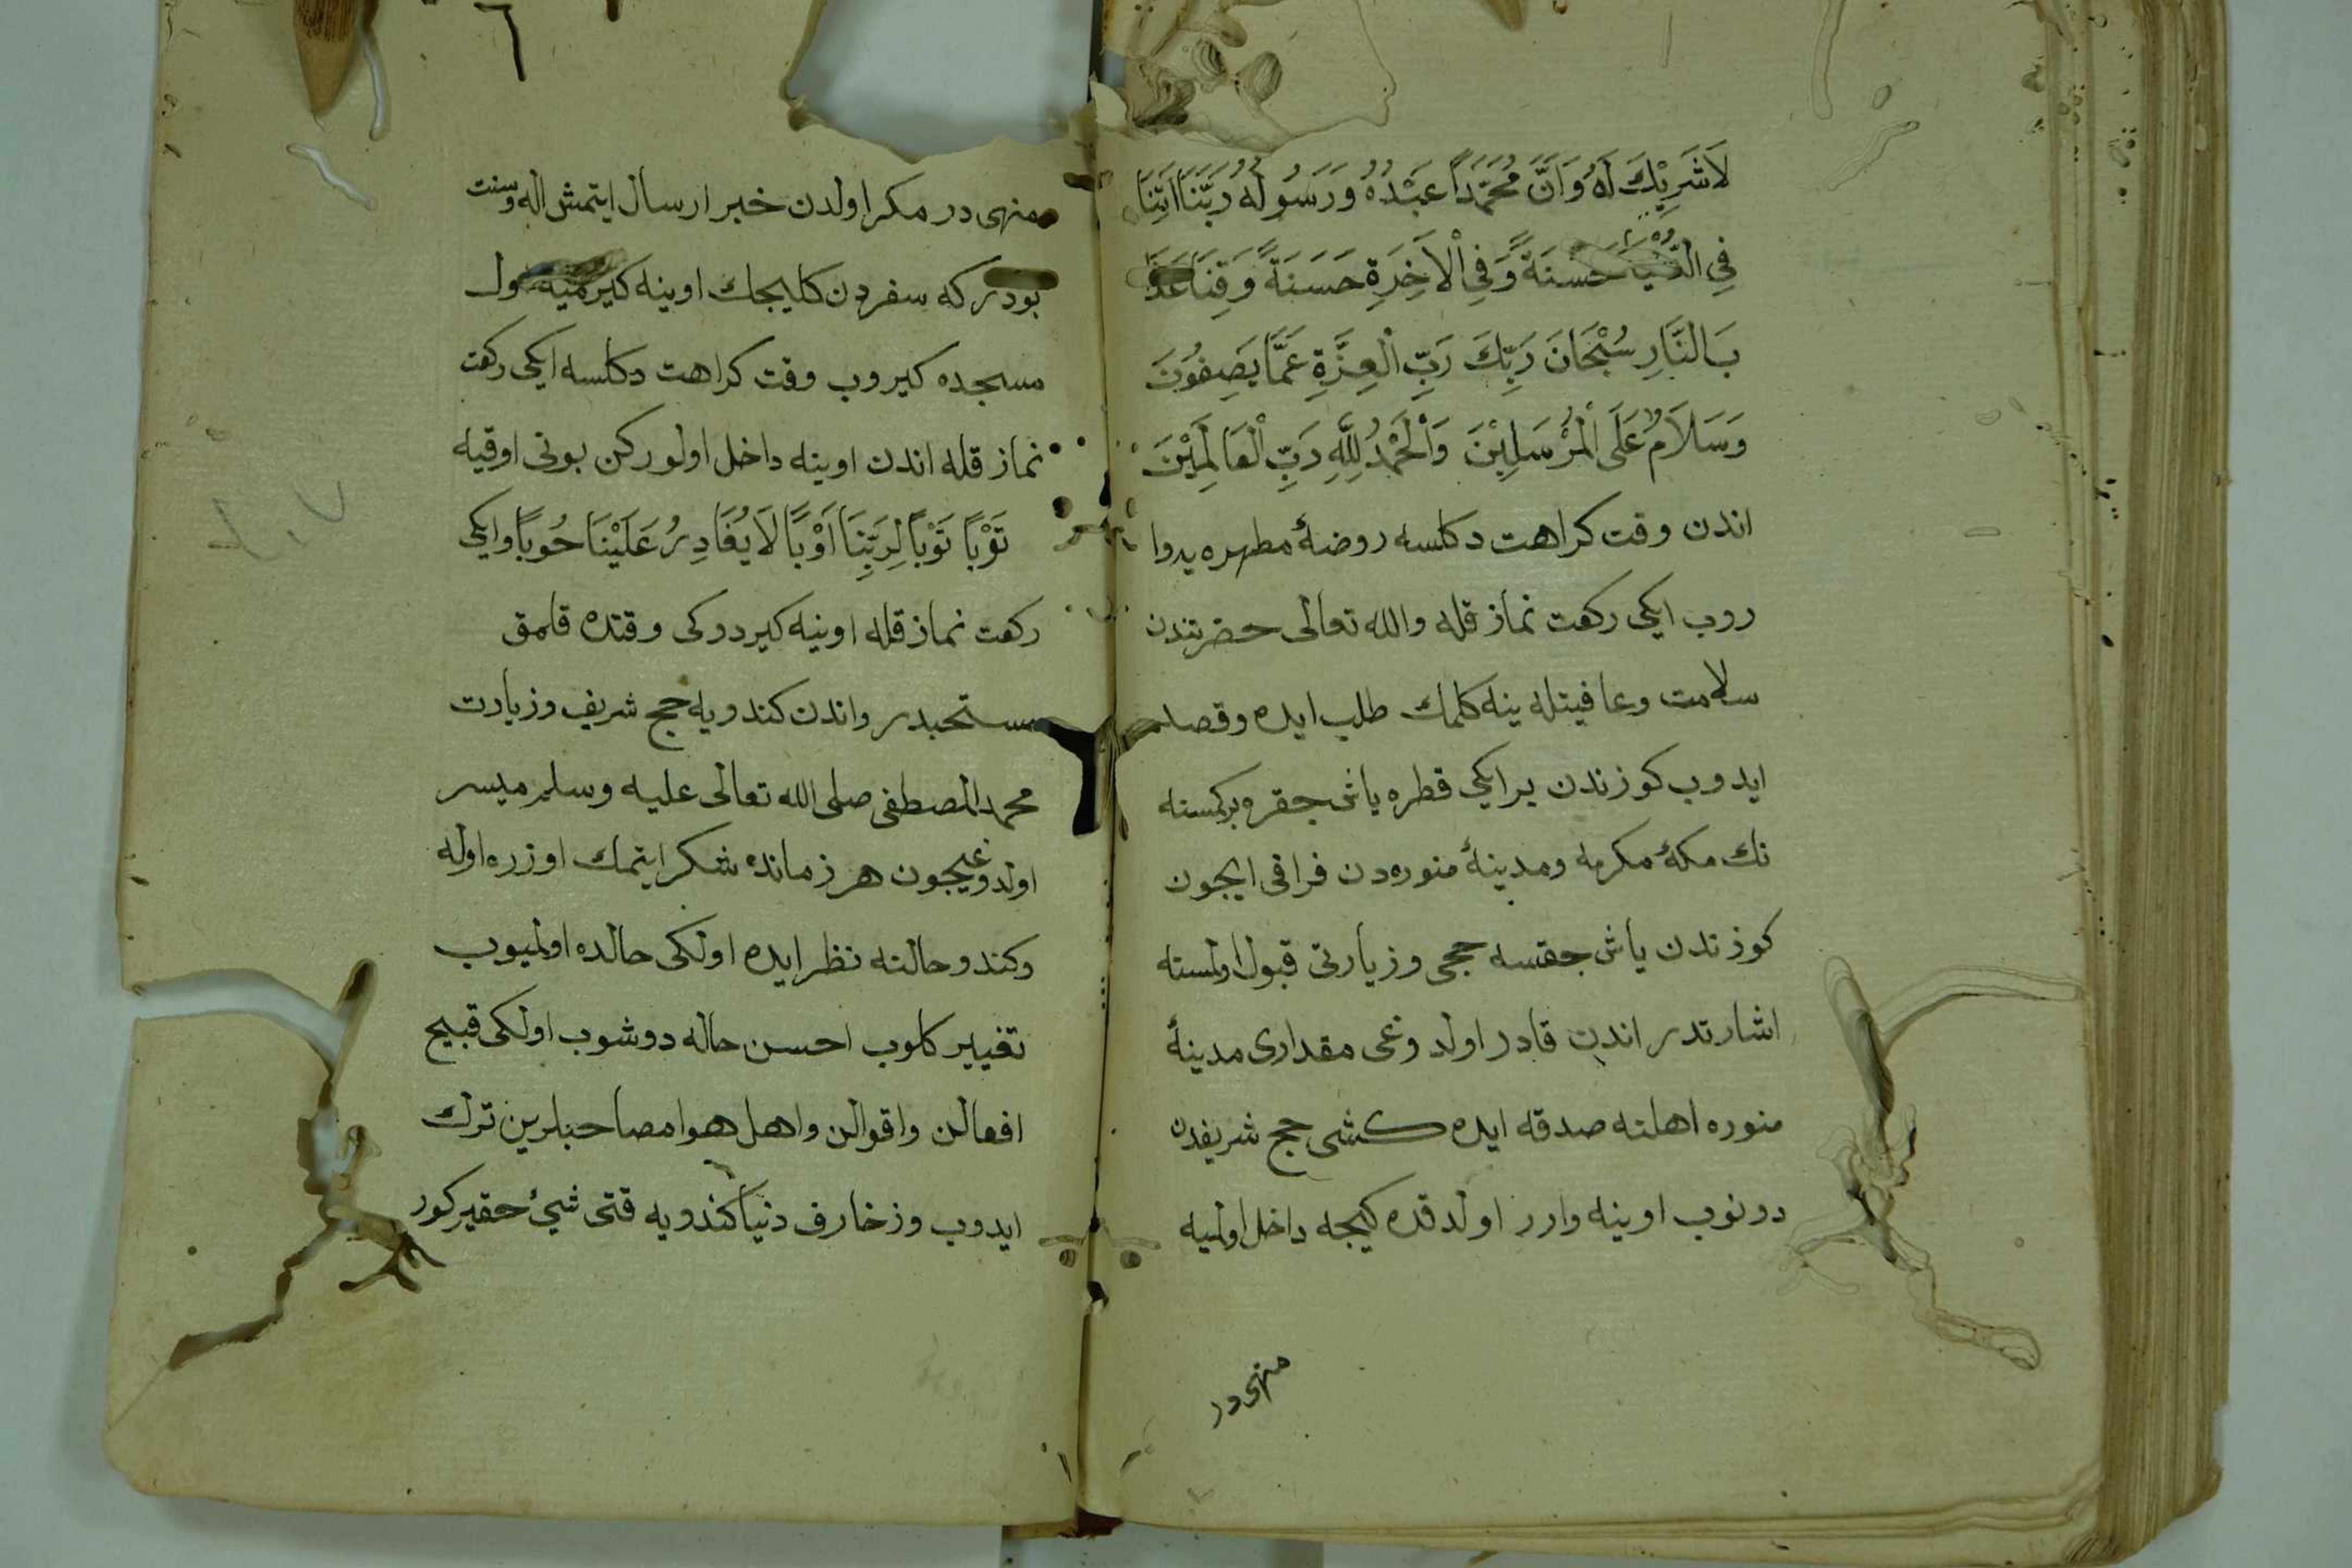 لَاشَرِيْكَ لَهُ وَاَنَّ مُحَمَّدًا عَبْدُهُ وَرَسُولُهُ رَبَّنَا اٰتِنَا
فِي الدُّنْيَا حَسَنَةً وَفِي الْاَخِرَةِ حَسَنَةً وَقِنَا عَذَا
بَ النَّارِ سُبْحَانَ رَبِّكَ رَبِّ الْعِزَّةِ عَمَّا يَصِفُوْنَ
وَسَلَامٌ عَلَى الْمُرْسَلِيْنَ وَالْحَمْدُ لِلّٰهِ رَبِّ الْعَالَمِيْنَ
اندن وقت كراهت دكلسه روضۀ مطهره يه وا
روب ايكى ركعت نماز قله والله تعالى حضرتندن
سلامت وعافيتله ينه كلمك طلب ايده وقصد
ايدوب كوزندن بر ايكى قطره ياش جقره بركمسنه
نك مكۀ مكرمه ومدينۀ منوره دن فراقى ايجون
كوزندن ياش جقسه حجى وزيارتى قبول اولمسنه
اشارتدر اندن قادر اولدوغى مقدارى مدينۀ
منوره اهلنه صدقه ايده كشى حج شريفدن
دونوب اوينه وارر اولدقده كيجه داخل اولميه
منهى در
منهى در مكر اولدن خبر ارسال ايتمش اله وسنت
بودر كه سفردن كليجك اوينه كيرميه اول
مسجده كيروب وقت كراهت دكلسه ايكى ركعت
نماز قله اندن اوينه داخل اولوركن بونى اوقيه
تَوْبًا تَوْبًا لِرَبِّنَا اَوْبًا لَا يُغَادِرُ عَلَيْنَا حُوبًا وايكى
ركعت نماز قله اوينه كيردوكى وقتده قلمق
مستحبدر واندن كندويه حج شريف وزيارت
محمد المصطفى صلى الله تعالى عليه وسلم ميسر
اولدوغيجون هر زمانده شكر ايتمك اوزره اوله
وكندو حالنه نظر ايده اولكى حالده اولميوب
تغيير كلوب احسن حاله دوشوب اولكى قبيح
افعالن واقوالن واهل هوا مصاحبلرين ترك
ايدوب وزخارف دنيا كندويه قتى شئ حقير كور